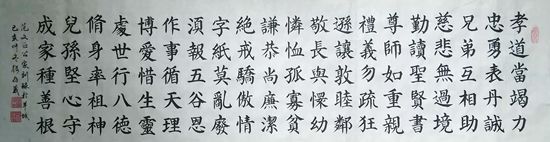 孝道當竭力
忠勇表丹誠
兄弟互相助
慈悲無過境
勤讀聖賢書
尊師如重親
禮義勿疏狂
遜讓敦睦鄰
敬長與懷幼
憐恤孤寡貧
謙恭尚廉潔
絕戒驕傲情
字紙莫亂廢
湏報五谷恩
作事循天理
博愛惜生靈
處世行八德
脩身率祖神
兒孫堅心守
成家種善根
范文正公家訓録於羊城
己亥仲冬